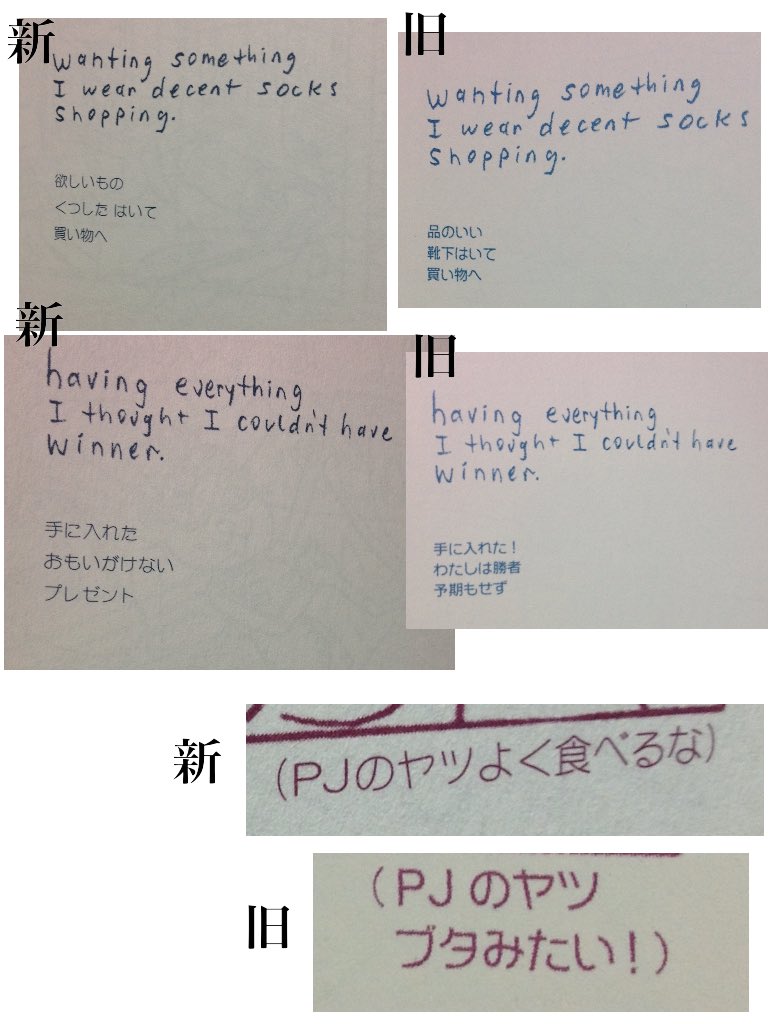 新
wanting something
I wear decent socks
shopping.
欲しいもの
くつした はいて
買い物へ
旧
wanting something
I wear decent socks
shopping.
品のいい
靴下はいて
買い物へ
新
having everything
I thought I couldn't have
winner.
手に入れた
おもいがけない
プレゼント
旧
having everything
I thought I couldn't have
winner.
手に入れた!
わたしは勝者
予期もせず
新
(PJのヤツよく食べるな)
旧
(PJのヤツ
ブタみたい!)